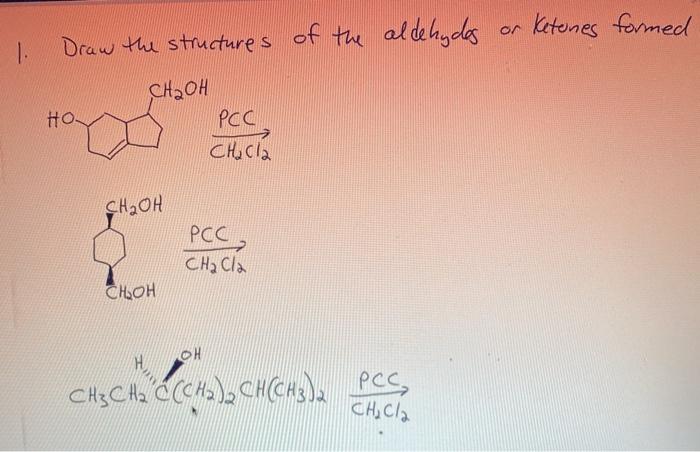 1. Draw the structures of the aldehydes or ketones formed
CH2OH
HO
PCC
CH2Cl2
CH2OH
PCC
CH2Cl2
CH2OH
H OH
CH3CH2 C(CH2)2CH(CH3)2 PCC
CH2Cl2